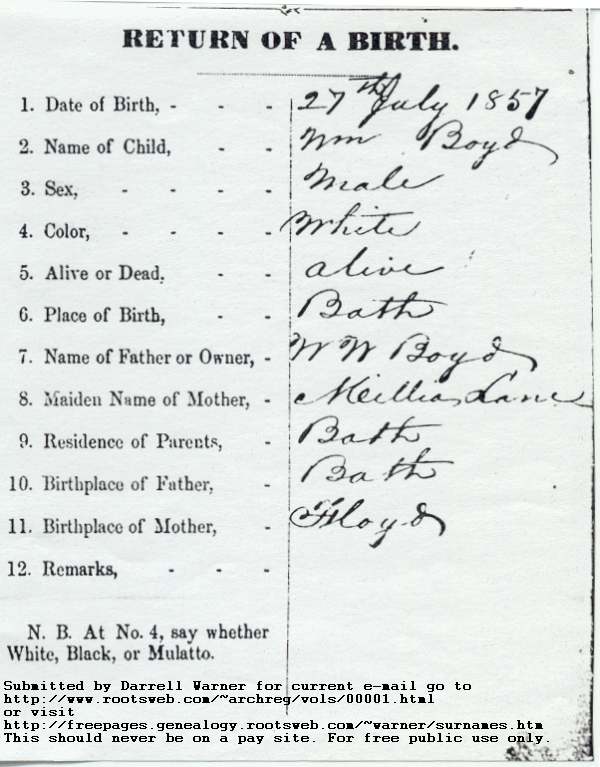 RETURN OF A BIRTH.
1. Date of Birth, - - - 27th July 1857
2. Name of Child, - - Wm Boyd
3. Sex, - - - - Male
4. Color, - - - - White
5. Alive or Dead, - - alive
6. Place of Birth, - - Bath
7. Name of Father or Owner, - W W Boyd
8. Maiden Name of Mother, - Lane
9. Residence of Parents, - Bath
10. Birthplace of Father, - Bath
11. Birthplace of Mother, - Floyd
12. Remarks, - - -
N. B. At No. 4, say whether
White, Black, or Mulatto.
Submitted by Darrell Warner for current e-mail go to
http://www.rootsweb.com/~archreg/vols/00001.html
or visit
http://freepages.genealogy.rootsweb.com/~warner/surnames.htm
This should never be on a pay site. For free public use only.